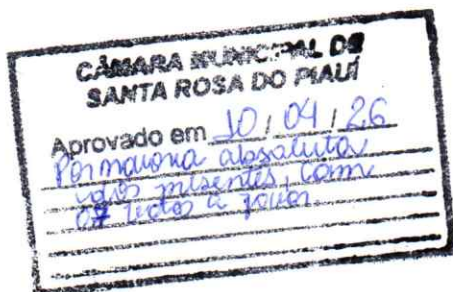 CÂMARA MUNICIPAL DE
SANTA ROSA DO PIAUÍ
Aprovado em 10 / 04 / 26
Por maioria absoluta
dos presentes, com
07 votos a favor.